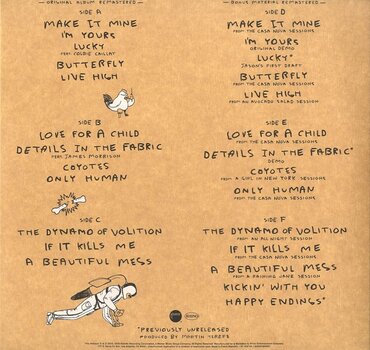 ORIGINAL ALBUM REMASTERED
SIDE A
MAKE IT MINE
I'M YOURS
LUCKY
FEAT. COLBIE CAILLAT
BUTTERFLY
LIVE HIGH
SIDE B
LOVE FOR A CHILD
DETAILS IN THE FABRIC
FEAT. JAMES MORRISON
COYOTES
ONLY HUMAN
SIDE C
THE DYNAMO OF VOLITION
IF IT KILLS ME
A BEAUTIFUL MESS
BONUS MATERIAL REMASTERED
SIDE D
MAKE IT MINE
FROM THE CASA NOVA SESSIONS
I'M YOURS
ORIGINAL DEMO
LUCKY*
JASON'S FIRST DRAFT
BUTTERFLY
FROM THE CASA NOVA SESSIONS
LIVE HIGH
FROM AN AVOCADO SALAD SESSION
SIDE E
LOVE FOR A CHILD
FROM THE CASA NOVA SESSIONS
DETAILS IN THE FABRIC*
DEMO
COYOTES
FROM A GIRL IN NEW YORK SESSIONS
ONLY HUMAN
FROM THE CASA NOVA SESSIONS
SIDE F
THE DYNAMO OF VOLITION
FROM AN ALL NIGHT SESSION
IF IT KILLS ME
FROM THE CASA NOVA SESSIONS
A BEAUTIFUL MESS
FROM A RAINING JANE SESSION
KICKIN' WITH YOU
HAPPY ENDINGS*
*PREVIOUSLY UNRELEASED
PRODUCED BY MARTIN TEREFE